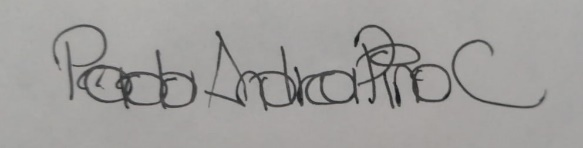 Paola Andrea Pino C